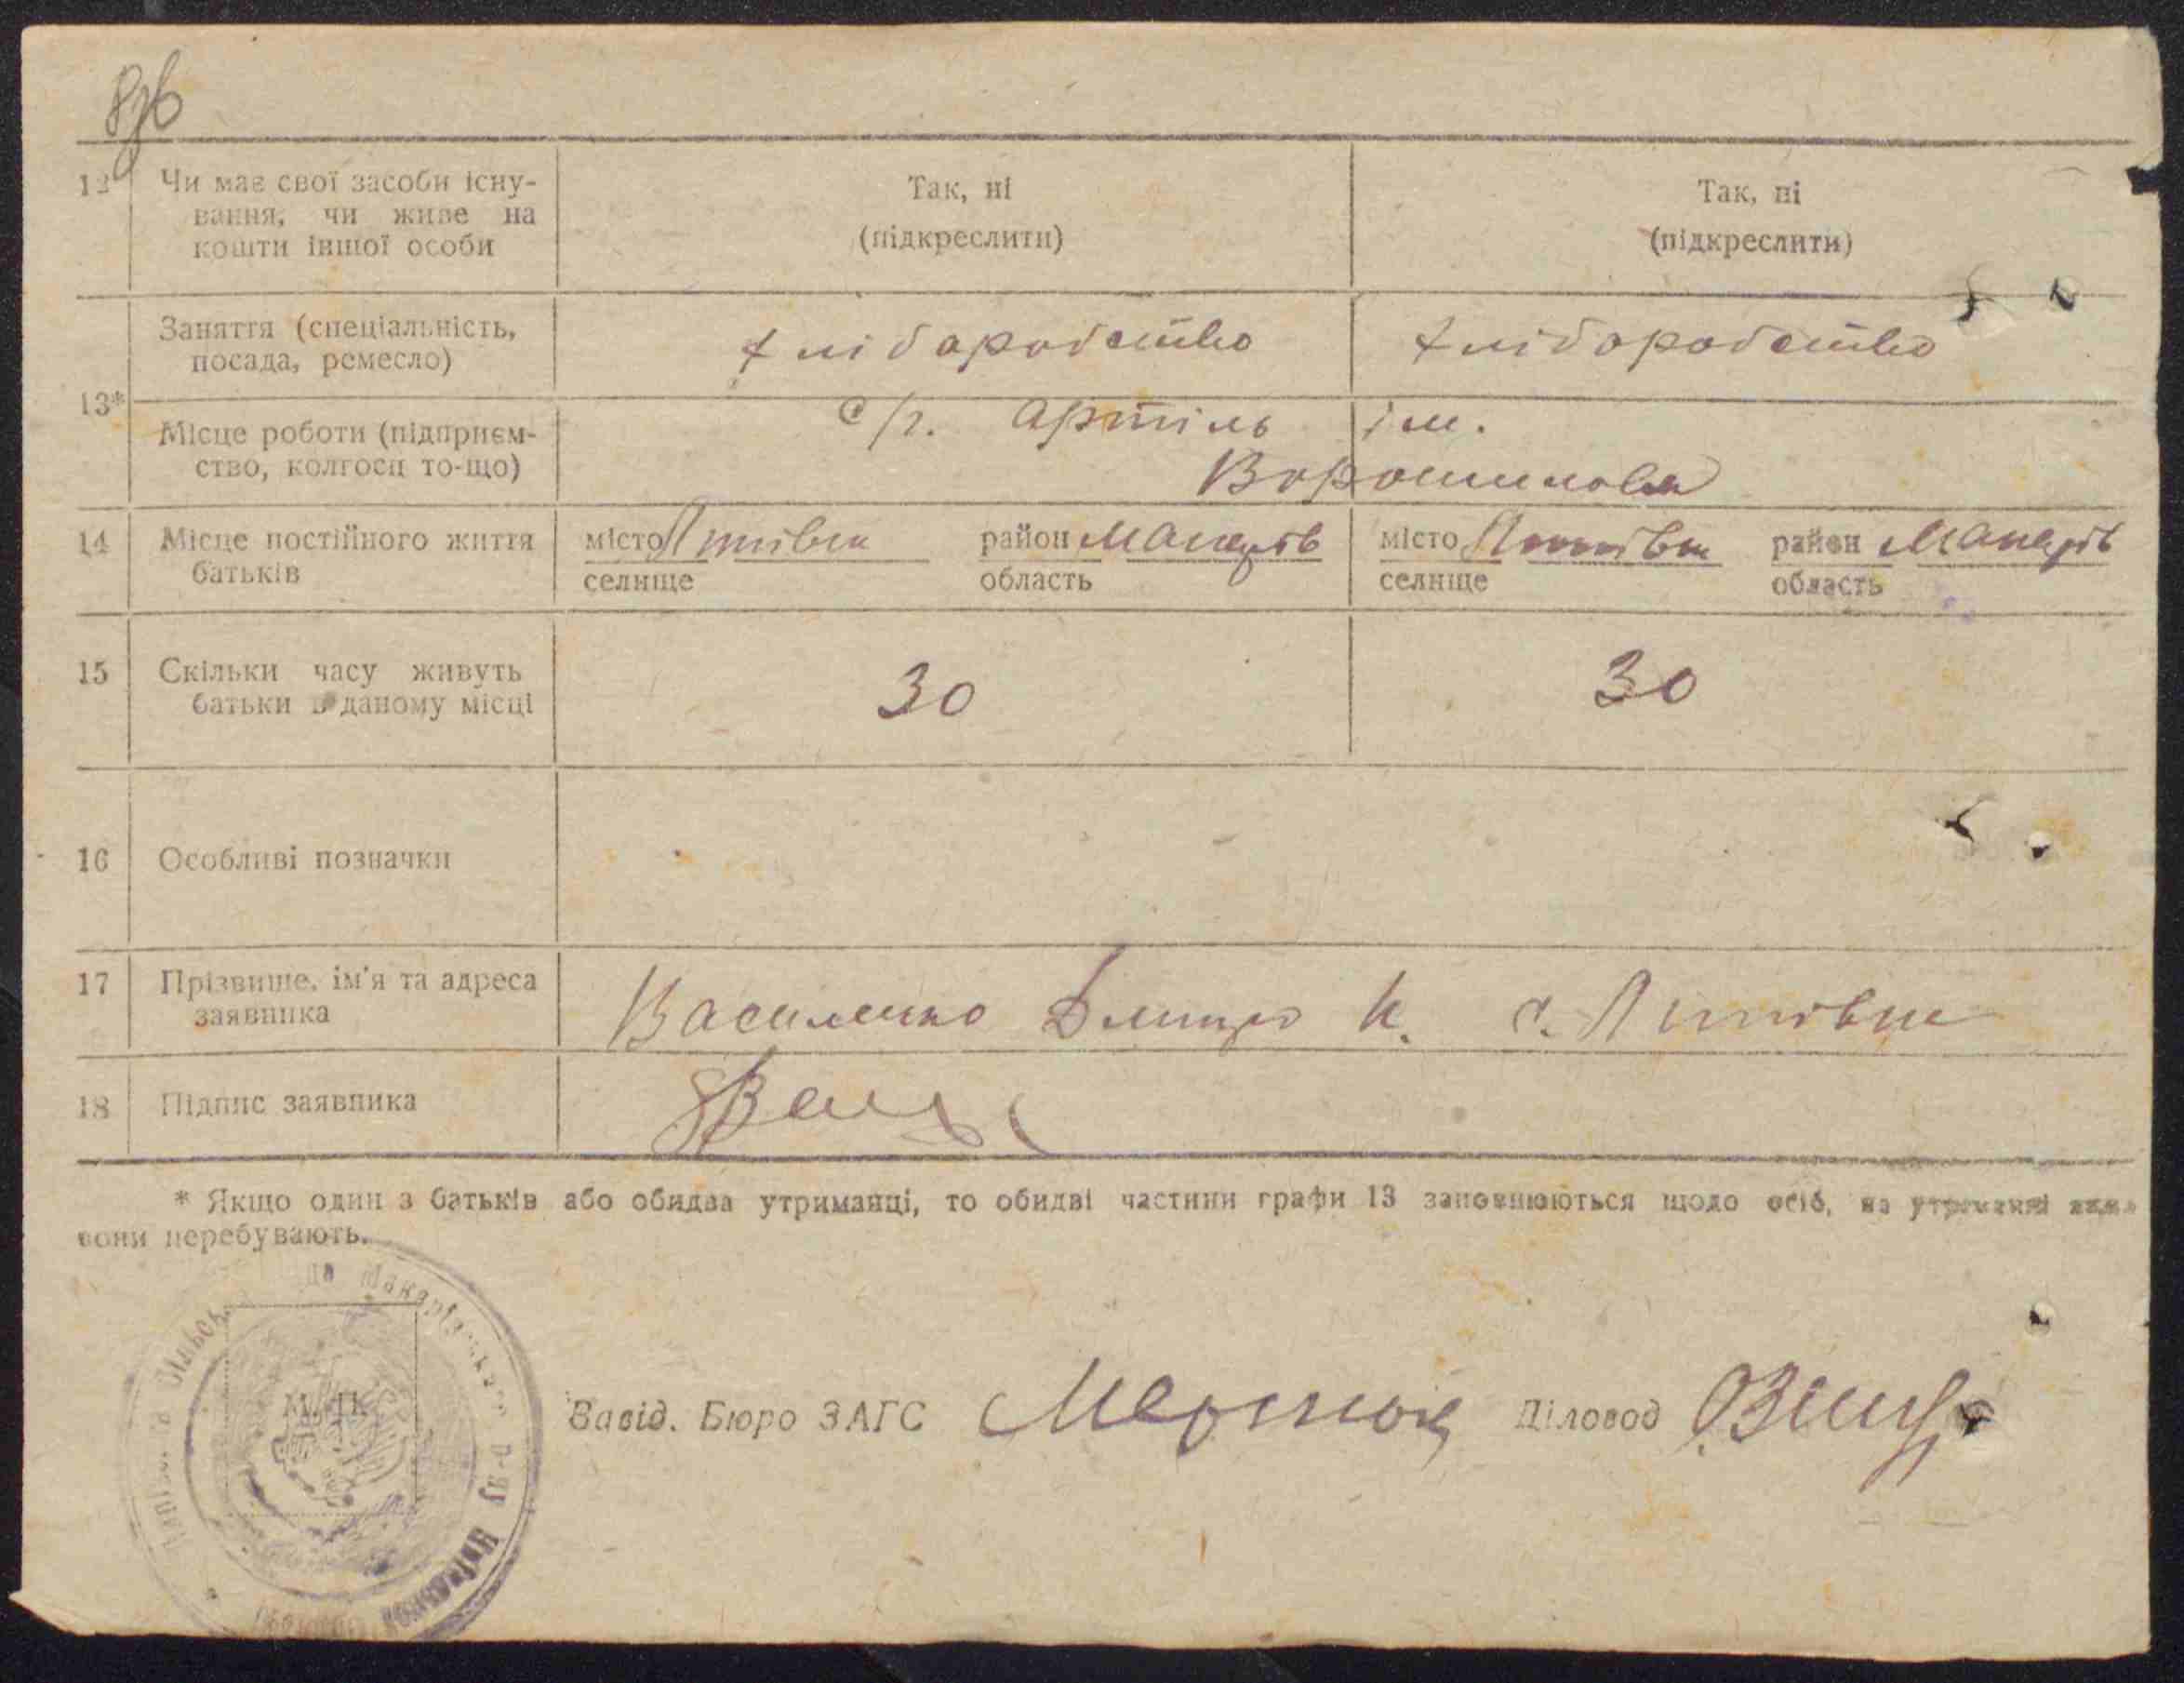 12 Чи має свої засоби існу-
вання, чи живе на
кошти іншої особи
Так, ні
(підкреслити)
Так, ні
(підкреслити)
13*
Заняття (спеціальність,
посада, ремесло)
хліборобство
хліборобство
Місце роботи (підприєм-
ство, колгосп то-що)
с/г. артіль ім.
Ворошилова
14 Місце постійного життя
батьків
місто
селище
район Макарів
область
місто
селище
район Макарів
область
15 Скільки часу живуть
батьки в даному місці
30
30
16 Особливі позначки
17 Прізвище, ім'я та адреса
заявника
Василенко Дмитро К. с.
18 Підпис заявника
* Якщо один з батьків або обидва утриманці, то обидві частини графи 13 заповнюються щодо осіб, на утриманні яких
вони перебувають.
М. П.
Завід. Бюро ЗАГС
Діловод